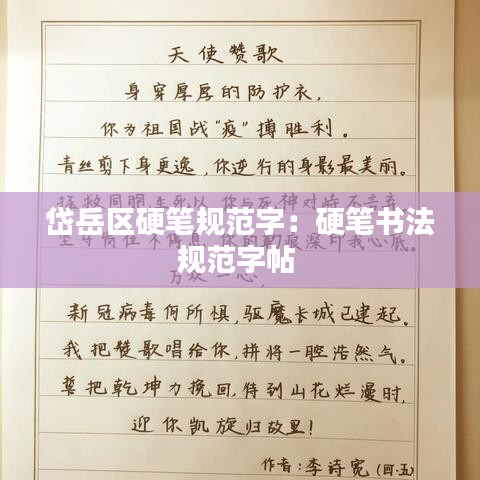 天使赞歌
身穿厚厚的防护衣，
你为祖国战“疫”搏胜利。
青丝剪下身更逸，你逆行的身影最美丽。
岱岳区硬笔规范字：硬笔书法
规范字帖
新冠病毒何所惧，驱魔长城已建起。
我把赞歌唱给你，拼将一腔浩然气。
誓把乾坤力挽回，待到山花烂漫时，
迎你凯旋归故里！
作者：李诗宽（四·五）